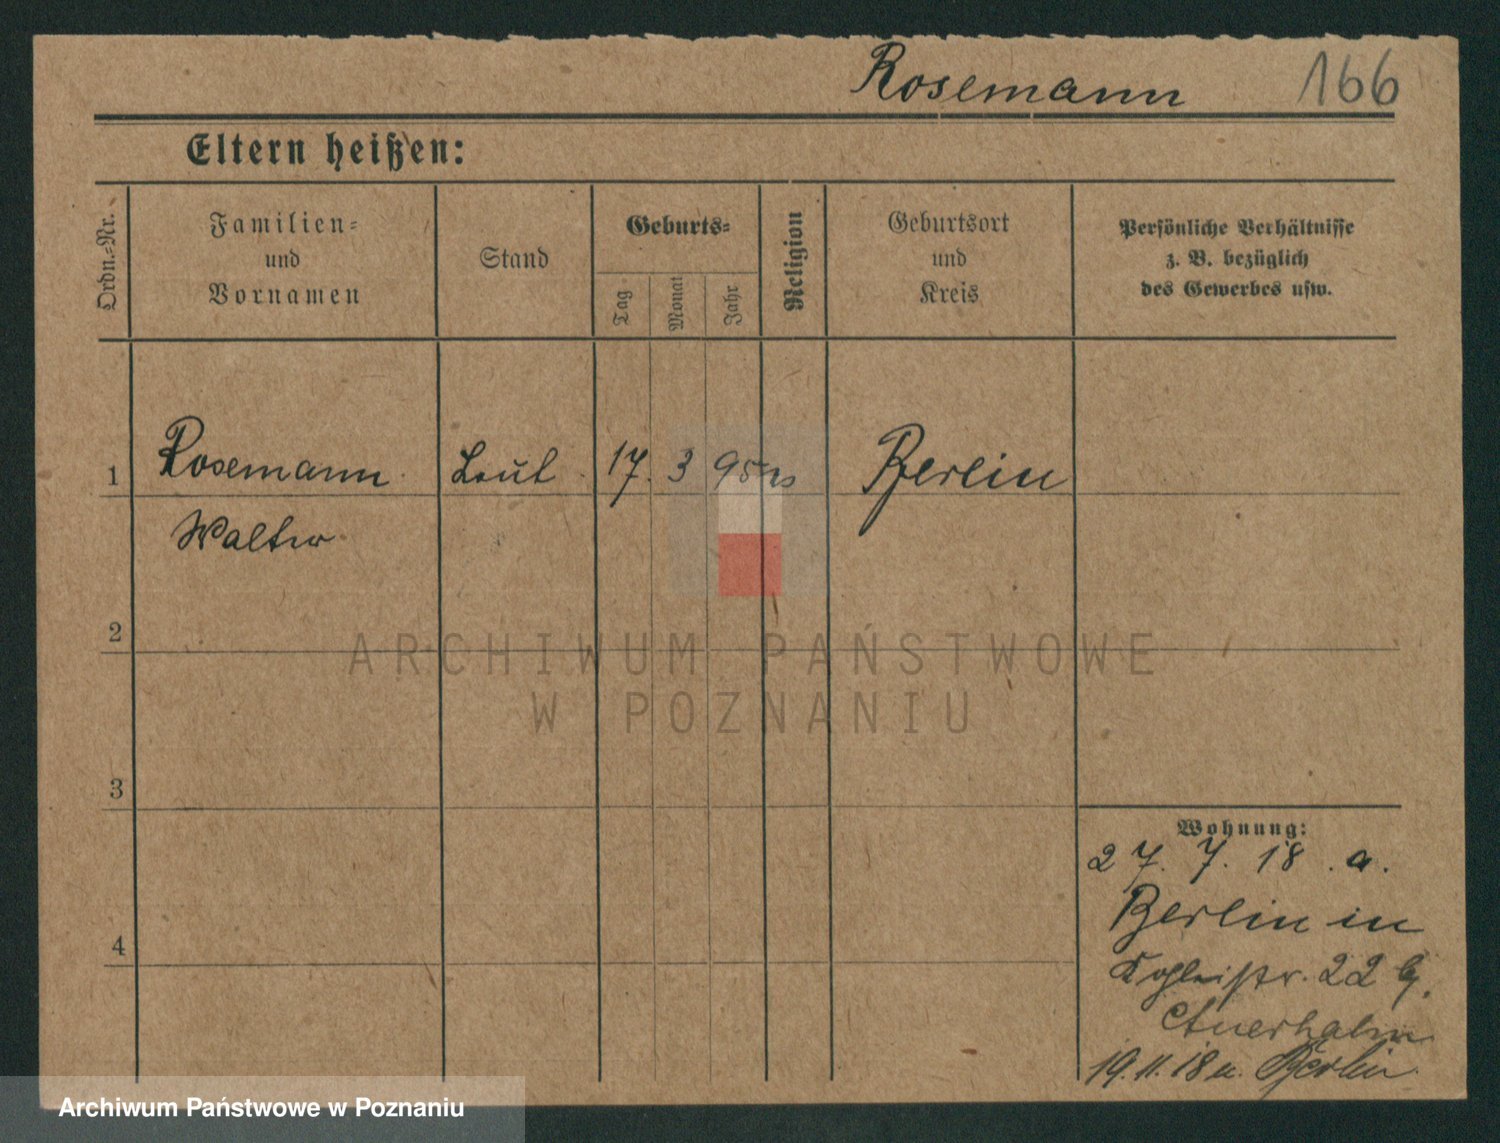 Rosemann 166
Eltern heißen:
Ordn.-Nr.
Familien-
und
Vornamen
Stand
Geburts-
Tag
Monat
Jahr
Religion
Geburtsort
und
Kreis
Persönliche Verhältnisse
z. B. bezüglich
des Gewerbes usw.
1 Rosemann Leut 17. 3 95 Berlin
Walter
2
ARCHIWUM PAŃSTWOWE
W POZNANIU
3
Wohnung:
27. 7. 18. a.
Berlin in
22
4
19. 11. 18 n. Berlin
Archiwum Państwowe w Poznaniu